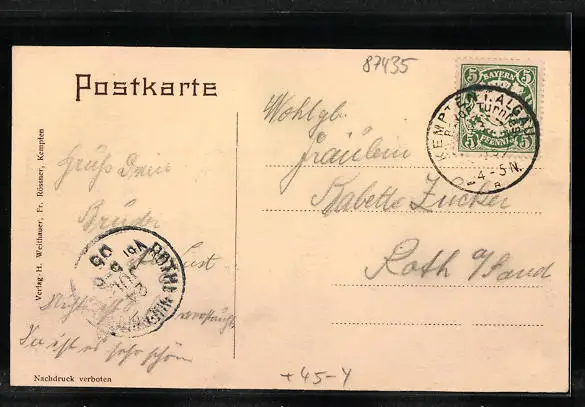 87435
Postkarte
5 BAYERN 5
5 PFENNIG 5
KEMPTEN ALGÄU
4-5N.
Wohlgb.
Fräulein
Babette Zucker
Roth a/Sand
Gruß Dein
Bruder
ROTH
Da ist es sehr schön
Verlag H. Weithauer, Fr. Rössner, Kempten
Nachdruck verboten
+45-4